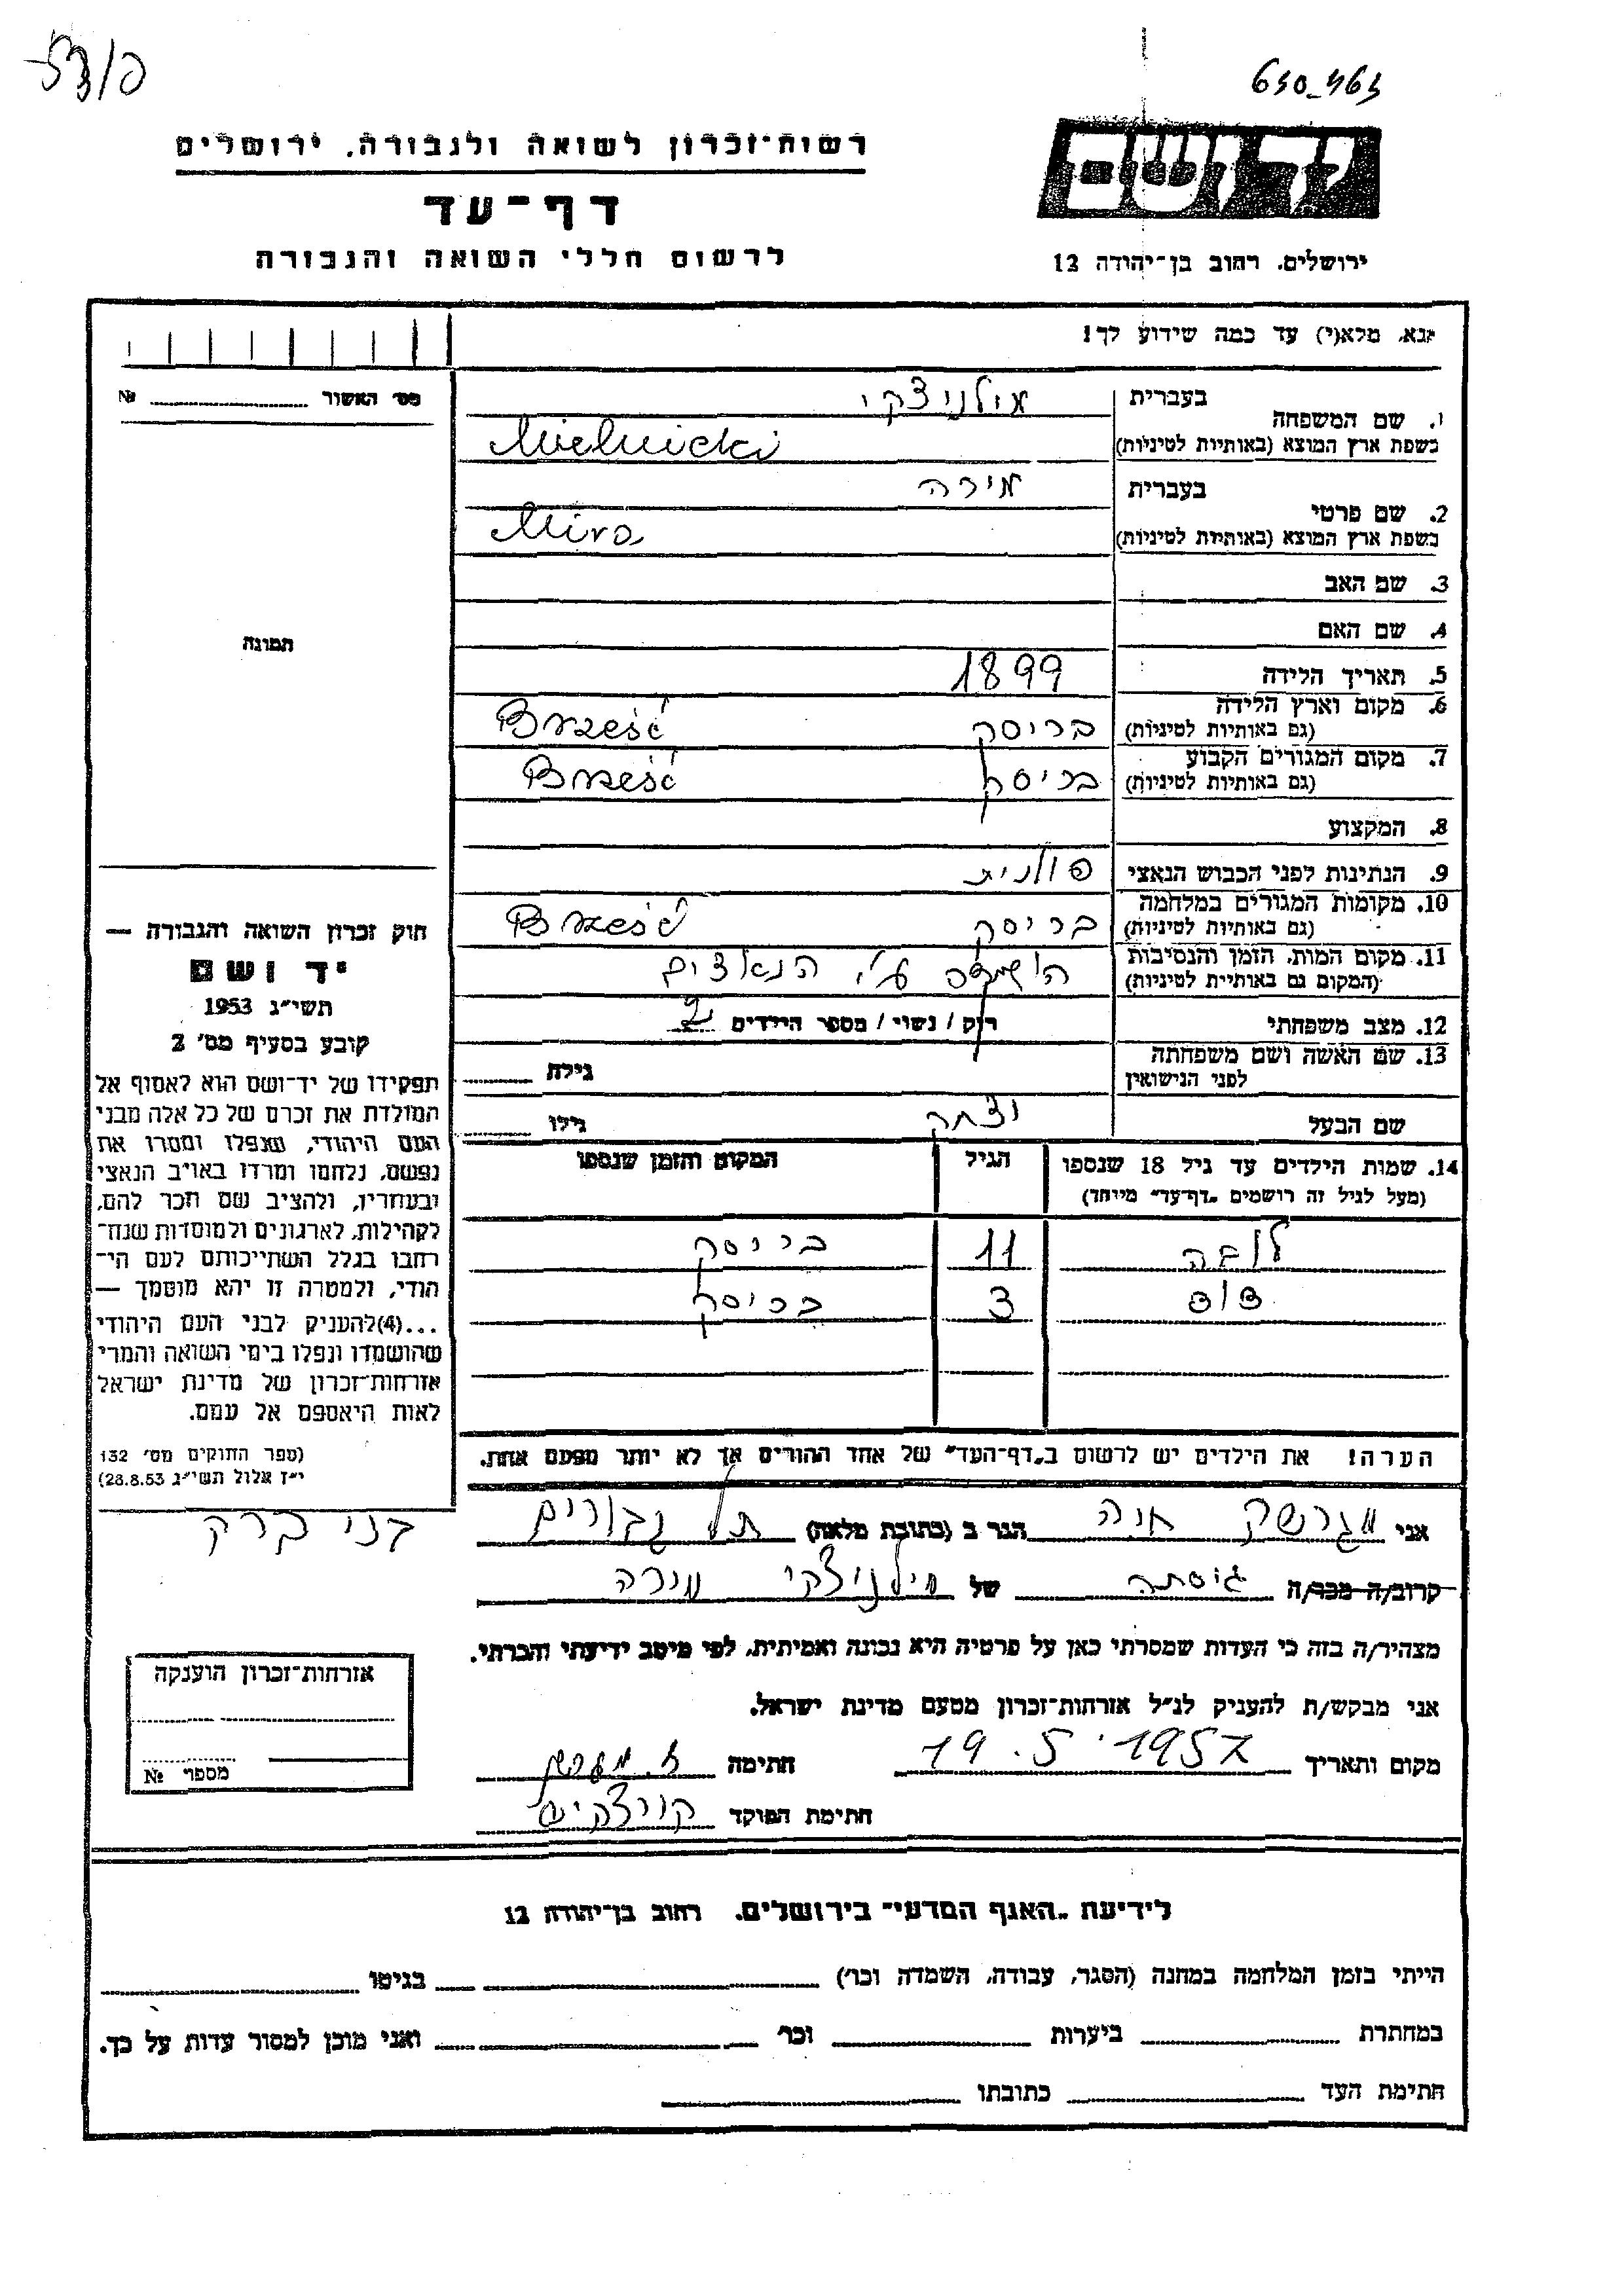 630-463
רשות-זכרון לשואה ולגבורה, ירושלים
יד ושם
דף-עד
לרשום חללי השואה והגבורה
ירושלים, רחוב בן-יהודה 12
אנא, מלא(י) עד כמה שידוע לך!
מס' האשור №
בעברית מילניצקי
1. שם המשפחה
בשפת ארץ המוצא (באותיות לטיניות) Mielnicki
בעברית מירה
2. שם פרטי
בשפת ארץ המוצא (באותיות לטיניות) Mira
3. שם האב
4. שם האם
תמונה
5. תאריך הלידה 1899
6. מקום וארץ הלידה
(גם באותיות לטיניות) בריסק Brześć
7. מקום המגורים הקבוע
(גם באותיות לטיניות) בריסק Brześć
8. המקצוע
9. הנתינות לפני הכבוש הנאצי פולנית
10. מקומות המגורים במלחמה
(גם באותיות לטיניות) בריסק Brześć
11. מקום המות, הזמן והנסיבות
(המקום גם באותיית לטיניות) ע"י הנאצים
12. מצב משפחתי רוק / נשוי / מספר הילדים 2
13. שם האשה ושם משפחתה
לפני הנישואין גילה
שם הבעל יצחק גילו
14. שמות הילדים עד גיל 18 שנספו הגיל המקום והזמן שנספו
(מעל לגיל זה רושמים "דף-עד" מיוחד)
ליבה 11 בריסק
3 בריסק
הערה! את הילדים יש לרשום ב"דף-העד" של אחד ההורים אך לא יותר מפעם אחת.
חוק זכרון השואה והגבורה —
יד ושם
תשי"ג 1953
קובע בסעיף מס' 2
תפקידו של יד-ושם הוא לאסוף אל
המולדת את זכרם של כל אלה מבני
העם היהודי, שנפלו ומסרו את
נפשם, נלחמו ומרדו באויב הנאצי
ובעוזריו, ולהציב שם וזכר להם,
לקהילות, לארגונים ולמוסדות שנח-
רבו בגלל השתייכותם לעם הי-
הודי, ולמטרה זו יהא מוסמך —
...(4)להעניק לבני העם היהודי
שהושמדו ונפלו בימי השואה והמרי
אזרחות-זכרון של מדינת ישראל
לאות היאספם אל עמם.
(ספר החוקים מס' 132
י"ז אלול תשי"ג 28.8.53)
אני מגרשק חנה הגר ב (כתובת מלאה) תל גבורים בני ברק
קרוב/ה מכר/ה גיסתה של מילניצקי מירה
מצהיר/ה בזה כי העדות שמסרתי כאן על פרטיה היא נכונה ואמיתית, לפי מיטב ידיעתי והכרתי.
אני מבקש/ת להעניק לנ"ל אזרחות-זכרון מטעם מדינת ישראל.
מקום ותאריך 19.5.1957 חתימה
חתימת הפוקד
אזרחות-זכרון הוענקה
מספרי №
לידיעת "האגף המדעי" בירושלים, רחוב בן-יהודה 12
הייתי בזמן המלחמה במחנה (הסגר, עבודה, השמדה וכו') בגיטו
במחתרת ביערות וכו' ואני מוכן למסור עדות על כך.
חתימת העד כתובתו